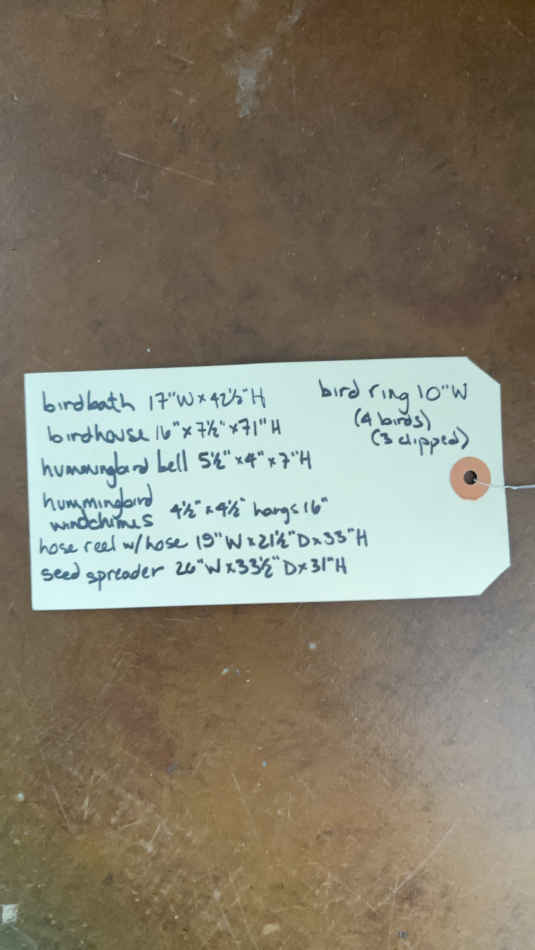 birdbath 17"W x 42½"H
birdhouse 16" x 7½" x 71"H
hummingbird bell 5½" x 4" x 7"H
hummingbird
windchimes 4½" x 4½" hangs 16"
hose reel w/hose 19"W x 21½"D x 33"H
seed spreader 26"W x 33½"D x 31"H
bird ring 10"W
(4 birds)
(3 clipped)